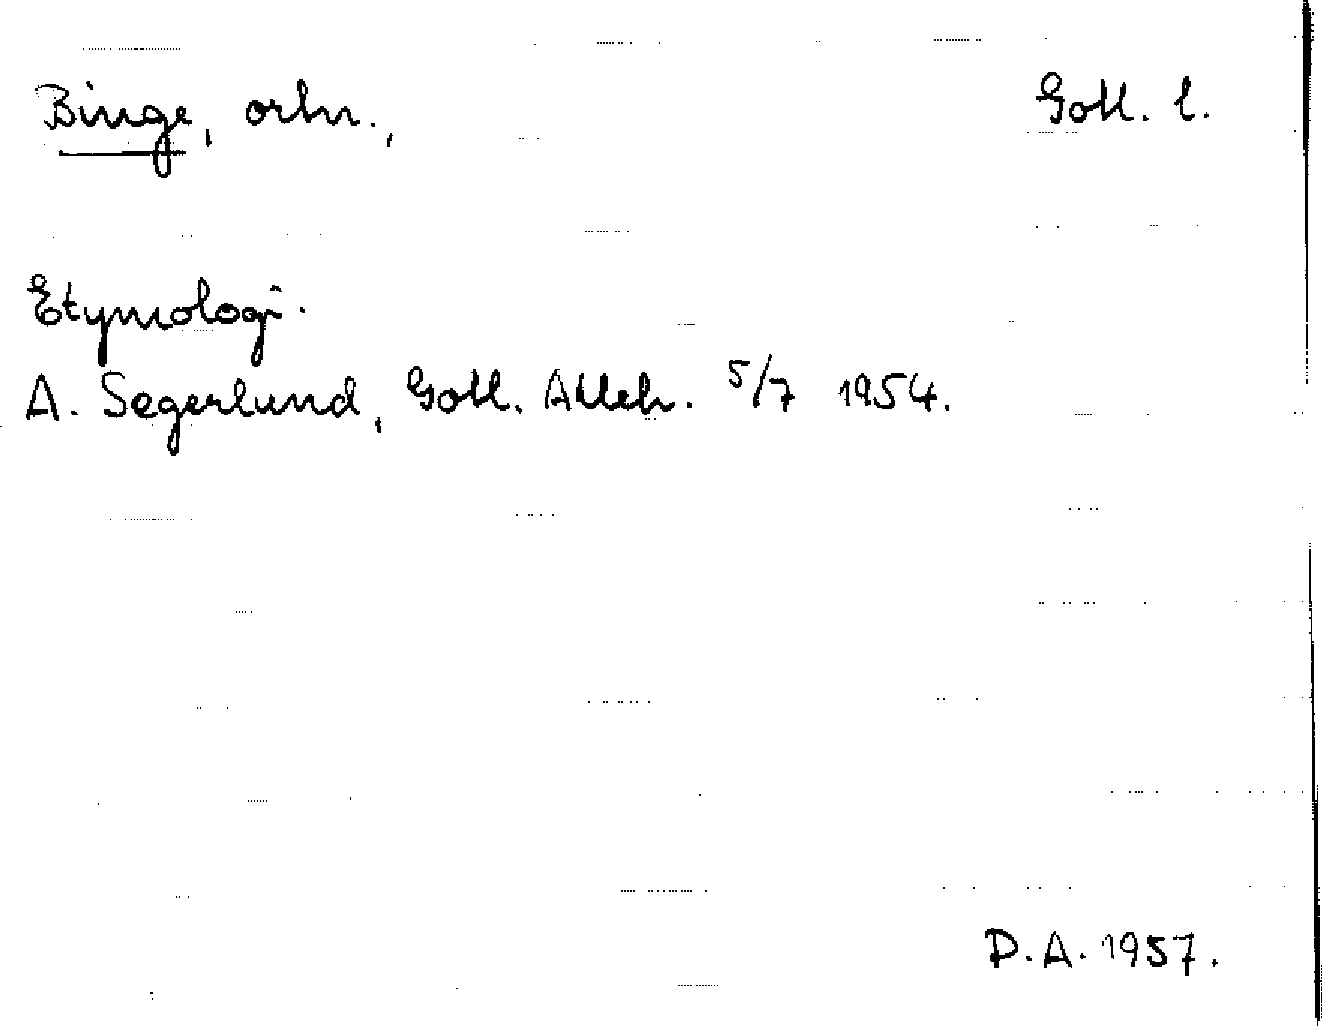 Binge, ortn., Gotl. l.
Etymologi.
A. Segerlund, Gotl. Alleh. 5/7 1954.
D.A. 1957.